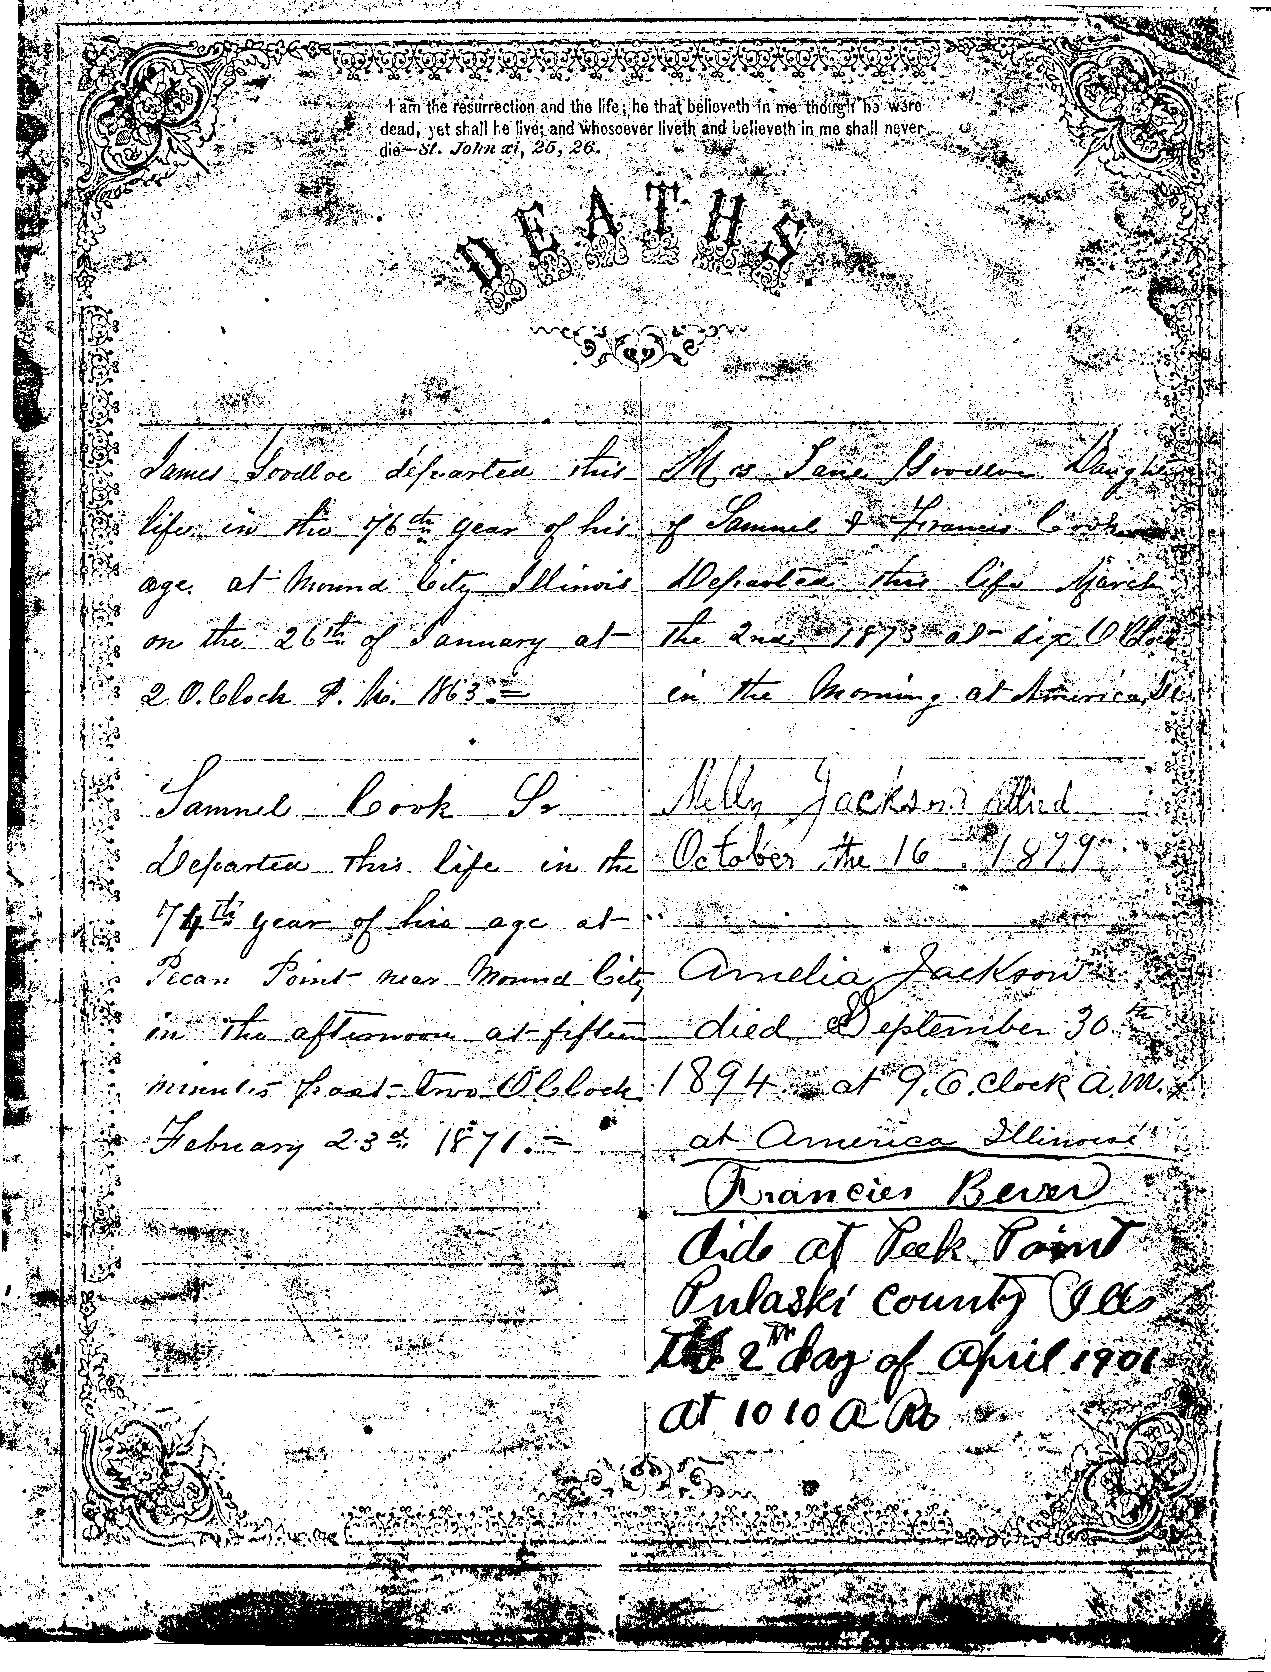 I am the resurrection and the life; he that believeth in me though he were
dead, yet shall he live; and whosoever liveth and believeth in me shall never
die—St. John xi, 25, 26.
DEATHS
James Goodloe departed this
life in the 76th year of his
age. at Mound City Illinois
on the 26th of January at
2 O.Clock P. M. 1863.=
Samuel Cook Sr
Departed this life in the
74th year of his age at
Pecan Point near Mound City
in the afternoon at fifteen
minutes past two O Clock
February 23d 1871.=
Mrs Jane Goodloe Daughter
of Samuel & Francis Cook
Departed this life March
the 2nd. 1873 at six O Clock
in the Morning at America, Ill
Milly Jackson died
October the 16 1879
Amelia Jackson
died September 30th
1894 at 9. O.clock A.M.
at America Illinois
Francies Bever
dide at Peek Point
Pulaski county Ills
the 2th day of April 1901
at 10 10 a